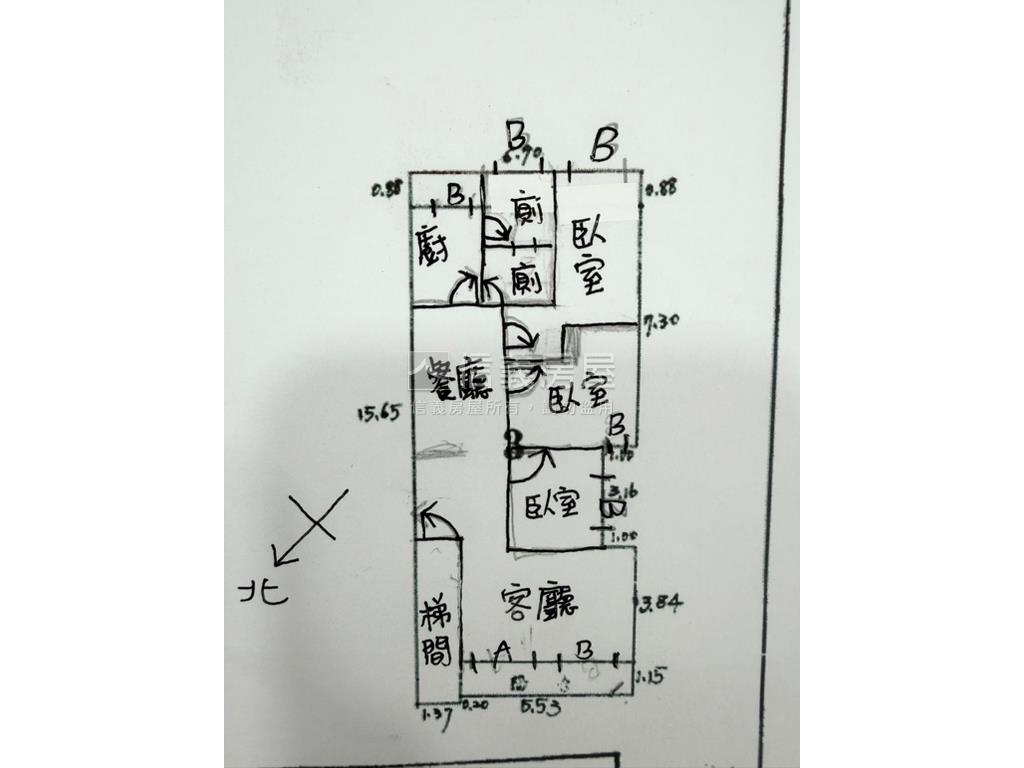 B
B
6.70
0.88
0.88
B
廁
臥室
廚
廁
7.30
餐廳
信義房屋
信義房屋所有，請勿盜用
臥室
15.65
B
1.00
3.16
臥室
B
1.00
北
客廳
3.84
梯間
A
B
1.15
1.37
0.20
5.53